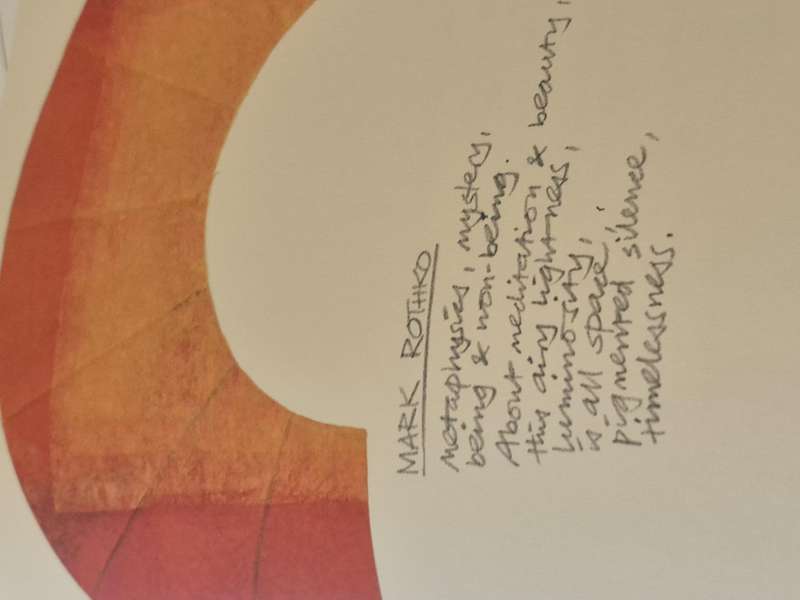 MARK ROTHKO
Metaphysics, mystery,
being & non-being.
About meditation & beauty,
this airy lightness,
luminosity,
is all space,
pigmented silence,
timelessness.